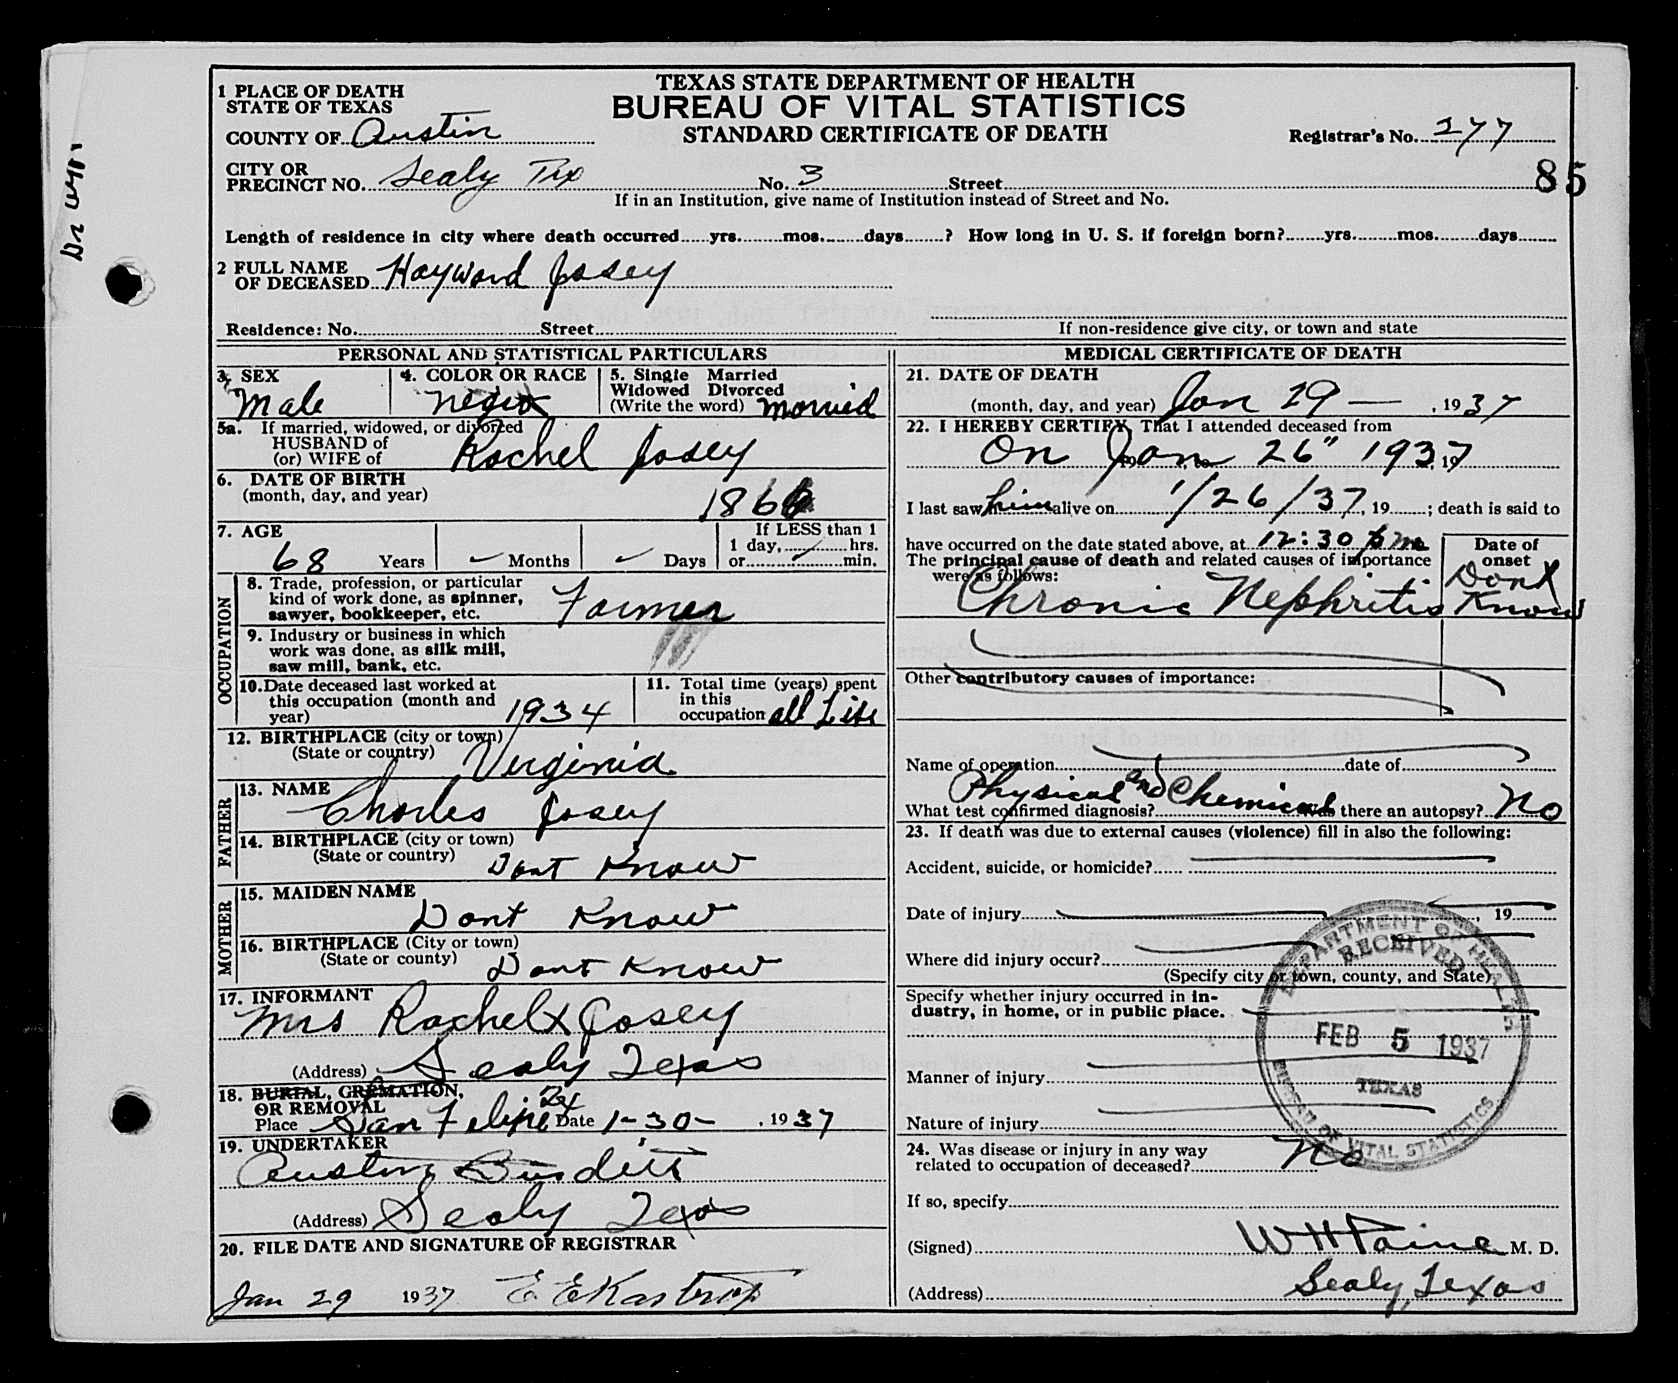 TEXAS STATE DEPARTMENT OF HEALTH
BUREAU OF VITAL STATISTICS
STANDARD CERTIFICATE OF DEATH
1 PLACE OF DEATH
STATE OF TEXAS
COUNTY OF Austin
Registrar's No. 277
CITY OR
PRECINCT NO. Sealy Tex No. 3 Street
85
If in an Institution, give name of Institution instead of Street and No.
Length of residence in city where death occurred yrs. mos. days ? How long in U. S. if foreign born? yrs. mos. days
2 FULL NAME
OF DECEASED Hayward Josey
Residence: No. Street
If non-residence give city, or town and state
PERSONAL AND STATISTICAL PARTICULARS
3. SEX
Male
4. COLOR OR RACE
negro
5. Single Married
Widowed Divorced
(Write the word) married
5a. If married, widowed, or divorced
HUSBAND of
(or) WIFE of Rachel Josey
6. DATE OF BIRTH
(month, day, and year)
7. AGE
68 Years Months Days
If LESS than 1
1 day, hrs.
or min.
OCCUPATION
8. Trade, profession, or particular
kind of work done, as spinner,
sawyer, bookkeeper, etc. Farmer
9. Industry or business in which
work was done, as silk mill,
saw mill, bank, etc.
10. Date deceased last worked at
this occupation (month and
year) 1934
11. Total time (years) spent
in this
occupation all Life
12. BIRTHPLACE (city or town)
(State or country) Virginia
FATHER
13. NAME
Charles Josey
14. BIRTHPLACE (city or town)
(State or country) Dont Know
MOTHER
15. MAIDEN NAME
Dont Know
16. BIRTHPLACE (City or town)
(State or county) Dont Know
17. INFORMANT
Mrs Rachel x Josey
(Address) Sealy Texas
18. BURIAL, CREMATION,
OR REMOVAL
Place San Felipe Tex Date 1-30- , 1937
19. UNDERTAKER
(Address) Sealy Texas
20. FILE DATE AND SIGNATURE OF REGISTRAR
Jan 29 1937 E E Kastrop
MEDICAL CERTIFICATE OF DEATH
21. DATE OF DEATH
(month, day, and year) Jan 29 — , 1937
22. I HEREBY CERTIFY, That I attended deceased from
On Jan 26" 1937, 19
I last saw him alive on 1/26/37, 19 ; death is said to
have occurred on the date stated above, at 12:30 pm
The principal cause of death and related causes of importance
were as follows:
Chronic Nephritis
Date of
onset
Dont
Know
Other contributory causes of importance:
Name of operation date of
What test confirmed diagnosis? Physical and Chemical Was there an autopsy? No
23. If death was due to external causes (violence) fill in also the following:
Accident, suicide, or homicide?
Date of injury , 19
Where did injury occur?
(Specify city or town, county, and State)
Specify whether injury occurred in in-
dustry, in home, or in public place.
Manner of injury
Nature of injury
24. Was disease or injury in any way
related to occupation of deceased? No
If so, specify
(Signed) W H Paine M. D.
(Address) Sealy, Texas
DEPARTMENT OF HEALTH
RECEIVED
FEB 5 1937
TEXAS
BUREAU OF VITAL STATISTICS